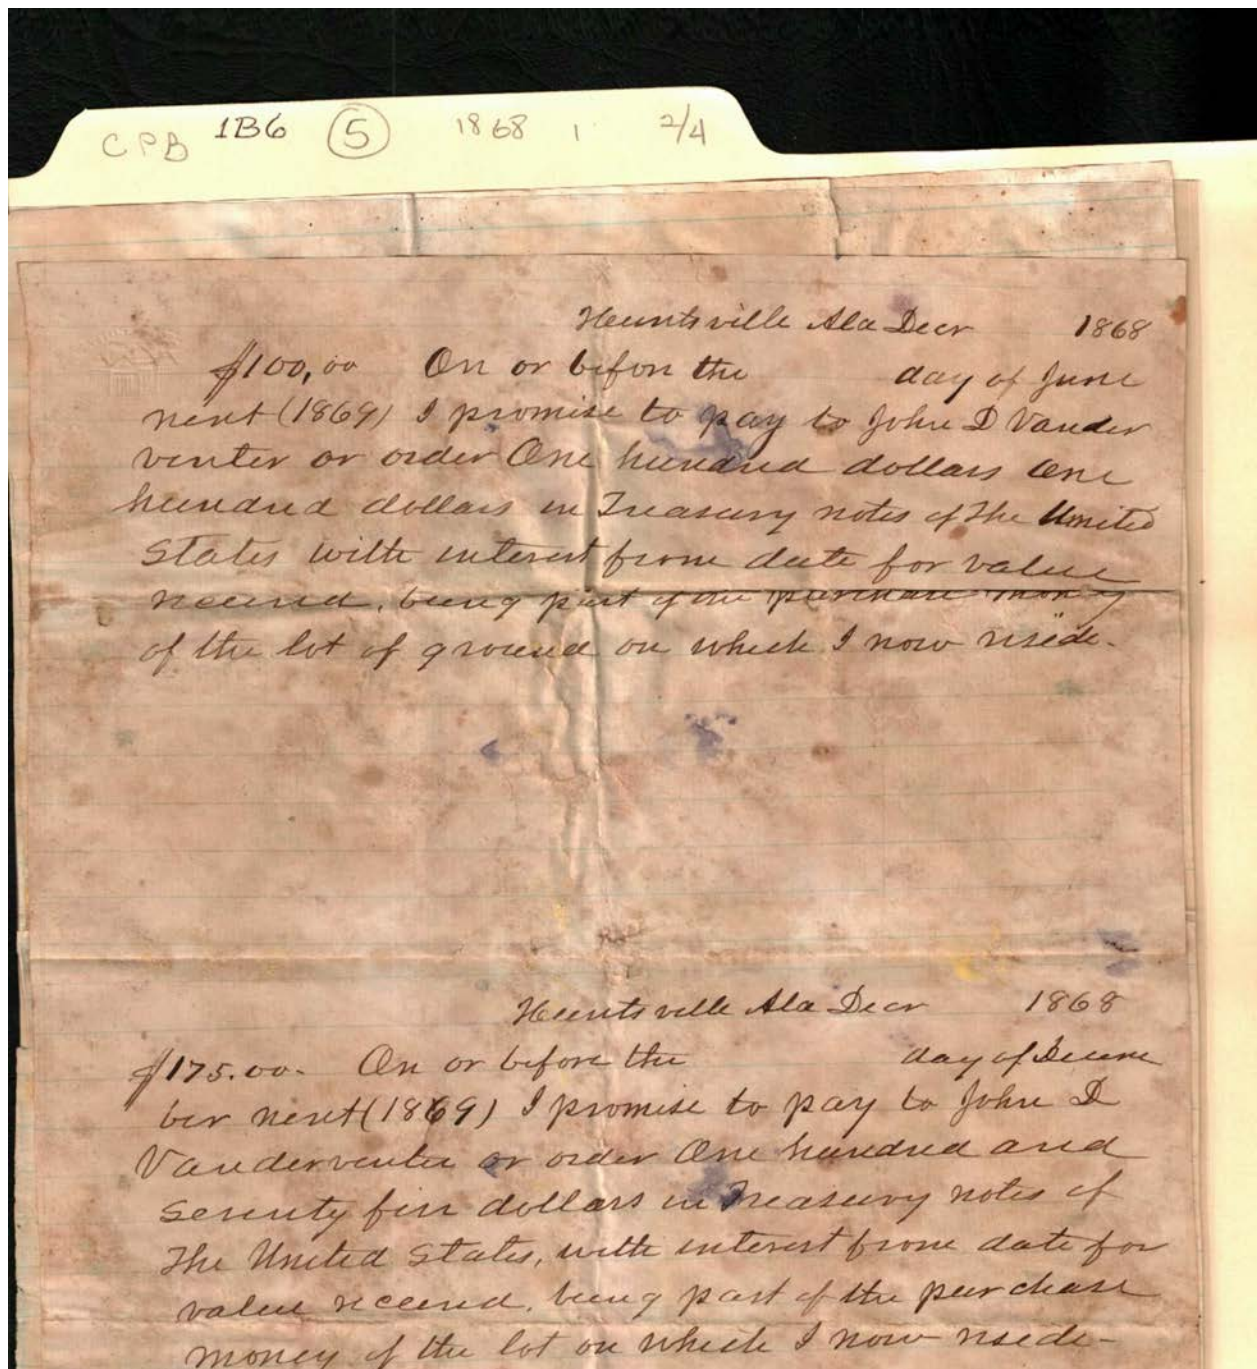 CPB 1B6 5 1868 1 2/4
Huntsville Ala Decr 1868
$100,00 On or before the day of June
next (1869) I promise to pay to John D Vander
venter or order One hundred dollars One
hundred dollars in Treasury notes of the United
States with interest from date for value
received, being part of the purchase money
of the lot of ground on which I now reside.
Huntsville Ala Decr 1868
$175.00. On or before the day of Decem
ber next (1869) I promise to pay to John D
Vanderventer or order One hundred and
Seventy five dollars in Treasury notes of
The United States, with interest from date for
value received, being part of the purchase
money of the lot on which I now reside-